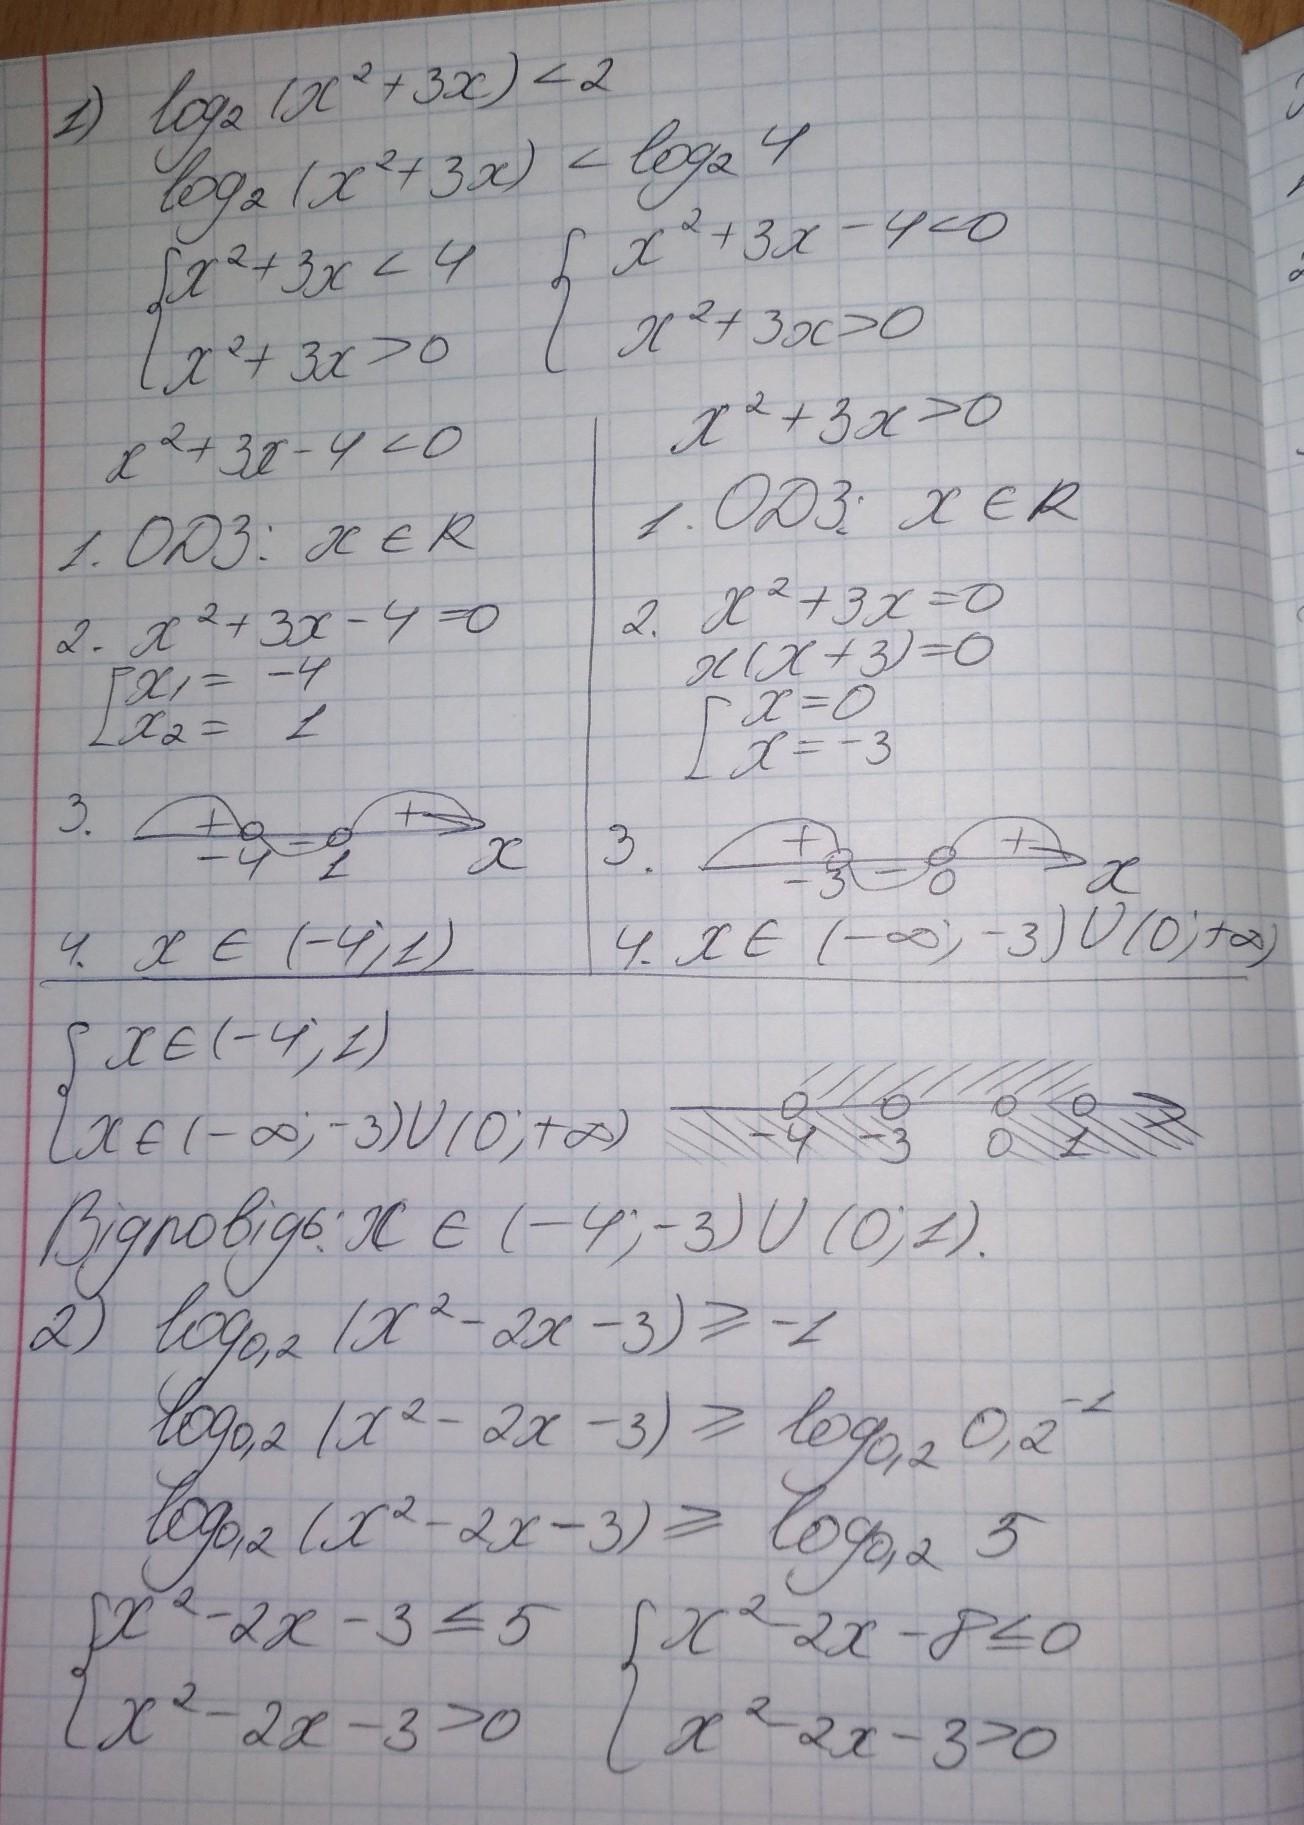 1) log₂ (x² + 3x) < 2
log₂ (x² + 3x) < log₂ 4
{ x² + 3x < 4 { x² + 3x - 4 < 0
{ x² + 3x > 0 { x² + 3x > 0
x² + 3x - 4 < 0
1. ОДЗ: x ∈ R
2. x² + 3x - 4 = 0
[ x₁ = -4
[ x₂ = 1
3. + - +
-4 1 x
4. x ∈ (-4; 1)
x² + 3x > 0
1. ОДЗ: x ∈ R
2. x² + 3x = 0
x(x + 3) = 0
[ x = 0
[ x = -3
3. + - +
-3 0 x
4. x ∈ (-∞; -3) ∪ (0; +∞)
{ x ∈ (-4; 1)
{ x ∈ (-∞; -3) ∪ (0; +∞)
-4 -3 0 1
Відповідь: x ∈ (-4; -3) ∪ (0; 1).
2) log₀,₂ (x² - 2x - 3) ⩾ -1
log₀,₂ (x² - 2x - 3) ⩾ log₀,₂ 0,2⁻¹
log₀,₂ (x² - 2x - 3) ⩾ log₀,₂ 5
{ x² - 2x - 3 ≤ 5 { x² - 2x - 8 ≤ 0
{ x² - 2x - 3 > 0 { x² - 2x - 3 > 0